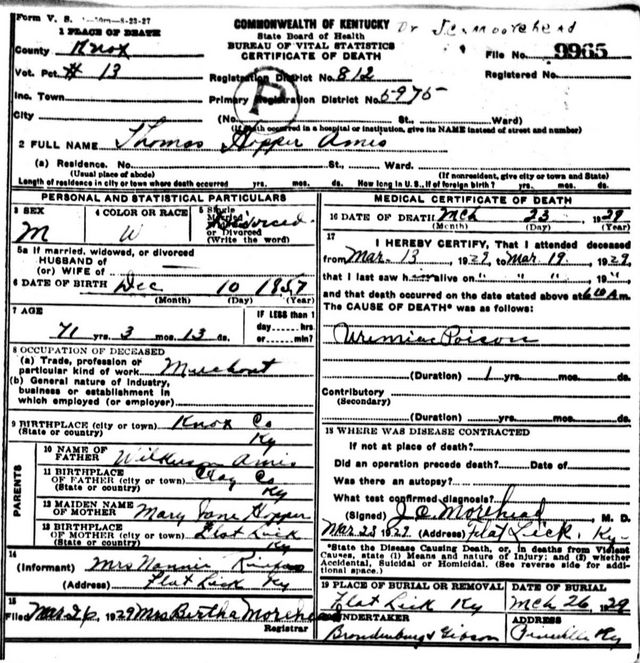 Form V. S. 8-23-27
COMMONWEALTH OF KENTUCKY
Dr J.C. Moorehead
1 PLACE OF DEATH
State Board of Health
BUREAU OF VITAL STATISTICS
CERTIFICATE OF DEATH
County Knox
File No. 9965
Vot. Pct. # 13
Registration District No. 812
Registered No.
Inc. Town
Primary Registration District No. 5975
City (No. St., Ward)
(If death occurred in a hospital or institution, give its NAME instead of street and number)
2 FULL NAME Thomas Hopper Amis
(a) Residence. No. St., Ward.
(Usual place of abode) (If nonresident, give city or town and State)
Length of residence in city or town where death occurred yrs. mos. ds. How long in U. S., if of foreign birth? yrs. mos. ds.
PERSONAL AND STATISTICAL PARTICULARS
3 SEX 4 COLOR OR RACE 5 Single Married Widowed or Divorced (Write the word)
M W Divorced
5a If married, widowed, or divorced
HUSBAND of
(or) WIFE of
6 DATE OF BIRTH Dec 10 1857
(Month) (Day) (Year)
7 AGE IF LESS than 1
71 yrs. 3 mos. 13 ds. day hrs. or min?
8 OCCUPATION OF DECEASED
(a) Trade, profession or
particular kind of work Merchant
(b) General nature of industry,
business or establishment in
which employed (or employer)
9 BIRTHPLACE (city or town) Knox Co
(State or country) Ky
PARENTS
10 NAME OF
FATHER Wilkerson Amis
11 BIRTHPLACE
OF FATHER (city or town) Clay Co
(State or country) Ky
12 MAIDEN NAME
OF MOTHER Mary Jane Hopper
13 BIRTHPLACE
OF MOTHER (city or town) Flat Lick
(State or country) Ky
14
(Informant) Mrs Nannie
(Address) Flat Lick Ky
15
Filed Mar 26, 1929 Mrs Bertha Morehead
Registrar
MEDICAL CERTIFICATE OF DEATH
16 DATE OF DEATH Mch 23, 1929
(Month) (Day) (Year)
17
I HEREBY CERTIFY, That I attended deceased
from Mar. 13 1929, to Mar. 19, 1929,
that I last saw h alive on " " " , 19 "
and that death occurred on the date stated above at 6 10 A m.
The CAUSE OF DEATH* was as follows:
Uremiac Poison
(Duration) 1 yrs. mos. ds.
Contributory
(Secondary)
(Duration) yrs. mos. ds.
18 WHERE WAS DISEASE CONTRACTED
If not at place of death?
Did an operation precede death? Date of
Was there an autopsy?
What test confirmed diagnosis?
(Signed) J.C. Morehead, M. D.
Mar. 23 1929 (Address) Flat Lick, Ky.
*State the Disease Causing Death, or, in deaths from Violent
Causes, state (1) Means and nature of Injury; and (2) whether
Accidental, Suicidal or Homicidal. (See reverse side for addi-
tional space.)
19 PLACE OF BURIAL OR REMOVAL DATE OF BURIAL
Flat Lick Ky Mch 26, 1929
UNDERTAKER ADDRESS
Brondenburg & Gibson Pineville Ky